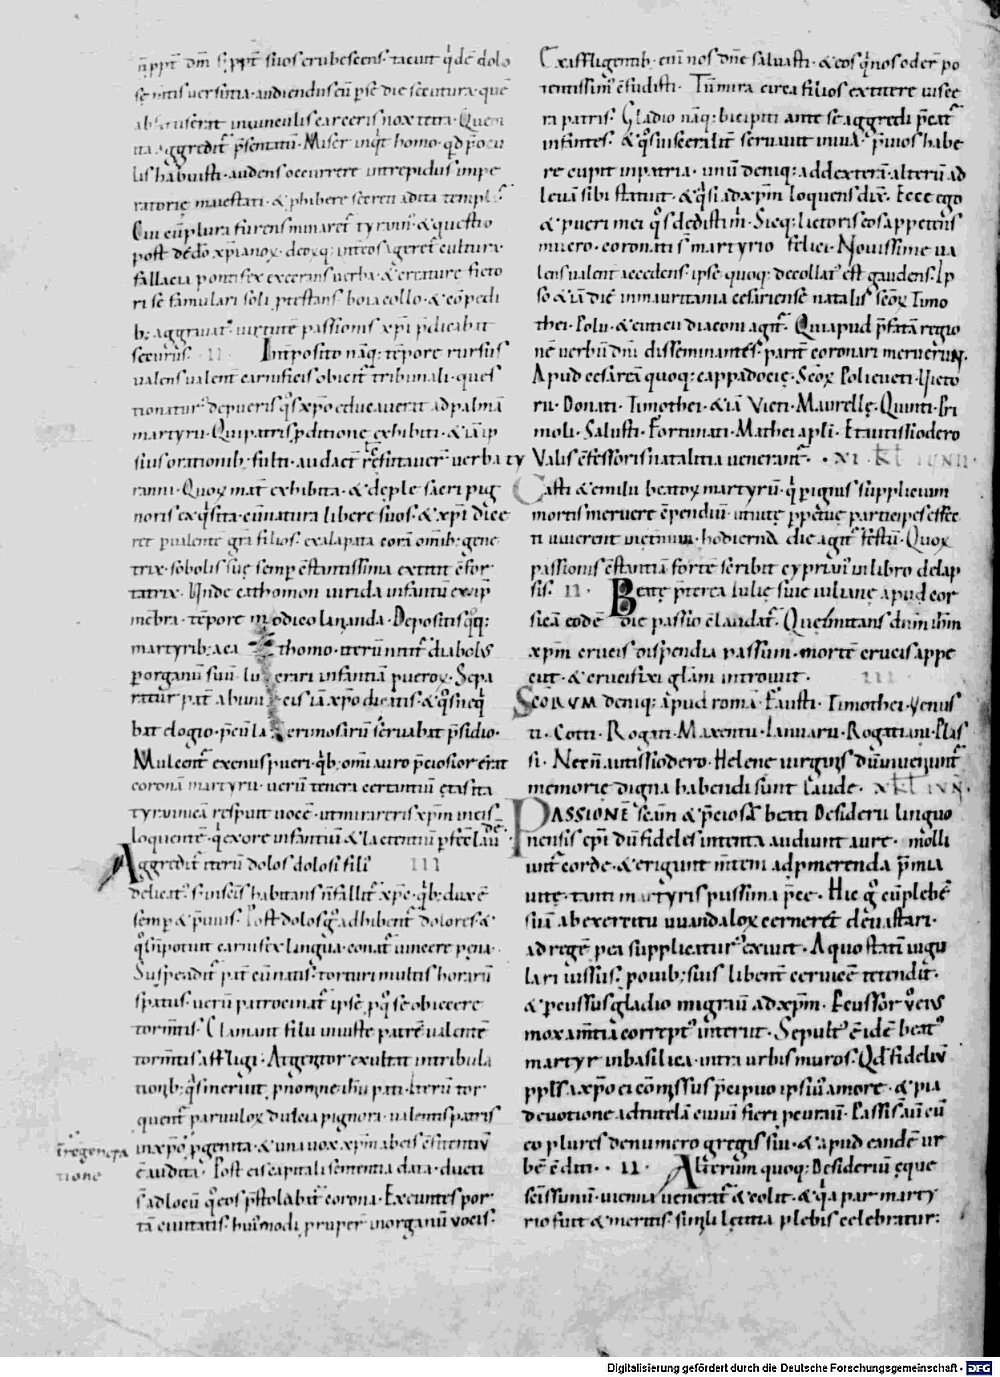 lis habuisti · audens occurrere intrepidus impe
ratorie maiestati · & phibere
Cui cu plura furens minaret tyrann · & questio
fallacia pontifex execrans verba · & creature ficto
ri se famulari soli ptestans · boia collo · & copedi
b; aggravat · virtute passionis xpi pdicabat
securus · II · Imposito naq; tepore rursus
valens valente carnificis obicit tribunali · ques
tionatur de pueris qs xpo educaverat ad palma
martyrii · Qui patris pditione exhibiti · & ia ip
sius orationib; fulti · audact refutaver verba ty
ranni · Quox mat exhibita · & de ple sacri pig
noris exqsita · cu natura libere suos · & xpi dice
ret pvalente gra filios · exalapata cora omib; gene
trix · sobolis sue semp cstantissima extitit cfor
tatrix · Unde cathomon virida infantu excip
mebra · tepore modico lananda · Depositis qoq;
martyrib; a ca thomo · iteru nitit diabolus
p organu suu lu crari infantia puerox · Sepa
ratur pat
bat elogio · pcu la crimosaru servabat psidio ·
Mulcent exenus pueri · qb; omi auro pciosior erat
corona martyrii · veru tenera certantiu etas ita
tyrannica respuit voce · ut mirareris xpm in eis
loquente · q ex ore infantiu & lactentiu pfecit lau
de
Aggredit iteru dolos dolosi fili III
delicat · s insens habitans n fallit xpc · qb; dux e
semp & pvius · Post dolos g adhibent dolores · &
qs n potuit carnifex lingua · conat vincere pena ·
Suspendit pat cu natis · torturi multis horaru
spatiis · veru patrocinat ipse p q se obicere
tormtis · Clamant filii iniuste patre valente
tormtis affligi · At genitor exultat in tribula
tionib; qs meruit p nomine ihu pati · Iteru tor
quent parvulox dulcia pignora · valentis patris
in regenera
tione
in xpo pgenita · & una vox xpm ab eis csitentiu
e audita · Post eis capitali sententia data · ducti
s ad locu q eos pstolabit corona · Exeuntes por
ta civitatis · huimodi pruper in organu vocis ·
Ex affligentib; eni nos dne salvasti · & eos q nos oder po
tentissim cfudisti · Tu mira circa filios extitere visce
ra patris · Gladio naq; bicipiti ante se aggredi pcat
infantes · & qs visceralit servavit in via · pvios habe
re cupit in patria · unu deniq; ad dextera · alteru ad
leva sibi statuit · & qsi ad xpm loquens dix · Ecce ego
& pueri mei qs dedisti m · Sicq; lictoris eos appetens
mucro · coronati s martyrio felici · Novissime va
lens valent accedens · ipse quoq; decollat est gaudens · Ip
so & ia die in mauritania cesariense natalis scox Timo
thei · Polii · & euticii diaconi agit · Qui apud pfata regio
ne verbu dni disseminantes · parit coronari merverunt ·
Apud cesarea quoq; cappadocie · Scox Polieucti · Victo
rii · Donati · Timothei · & ia Victi · Maurelle · Quinti · Pri
moli · Salusti · Fortunati · Mathei apli · Et autissiodero
Valis cfessoris natalitia venerant · XI · kl iunii ·
Casti & emilii beatox martyru · q p ignis supplicium
mortis meruere cpendiu · ut vite ppetue participes effec
ti viverent in eternu · hodierna die agit festu · Quox
passionis cstantia forte scribit cyprian in libro de lap
sis · II · Beate pterea Iulie sive iuliane apud cor
sica eode die passio claudat · Que imitans dnm ihm
xpm crucis dispendia passum · morte crucis appe
tiit · & crucifixi glam introivit · III
SCORUM deniq; apud roma · Fausti · Timothei · Venus
ti · Cotti · Rogati · Maxenti · Ianuarii · Rogatiani · Plas
si · Nec n autissiodero · Helene virginis du inveniunt
memorie digna habendi sunt laude · X kl iun ·
PASSIONE scam & pciosa beati Desiderii linguo
nensis epi du fideles intenta audiunt aure · molli
unt corde · & erigunt mtem ad pmerenda pmia
vite · tanti martyris piissima pce · Hic g cu plebe
sua ab exercitu vuandalox cerneret devastari ·
ad rege p ea supplicatur exivit · A quo stati iugu
lari iussus · p ovib; suis libent cervice tetendit ·
& pcussus gladio migravit ad xpm · Pcussor vo eius
mox amtia corrept interiit · Sepult e ide beat
martyr in basilica · intra urbis muros · Qd fidelium
ppls a xpo ei comissus pcipuo ipsius amore · & pia
devotione ad tutela civium fieri pcuravit · Passi s au cu
eo plures de numero gregis sui · & apud eande ur
be cditi · II · Alterum quoq; Desideriu eque
scissimu · vienna venerat & colit · & qa par marty
rio fuit & meritis · simili letitia plebis celebratur:
Digitalisierung gefördert durch die Deutsche Forschungsgemeinschaft - DFG